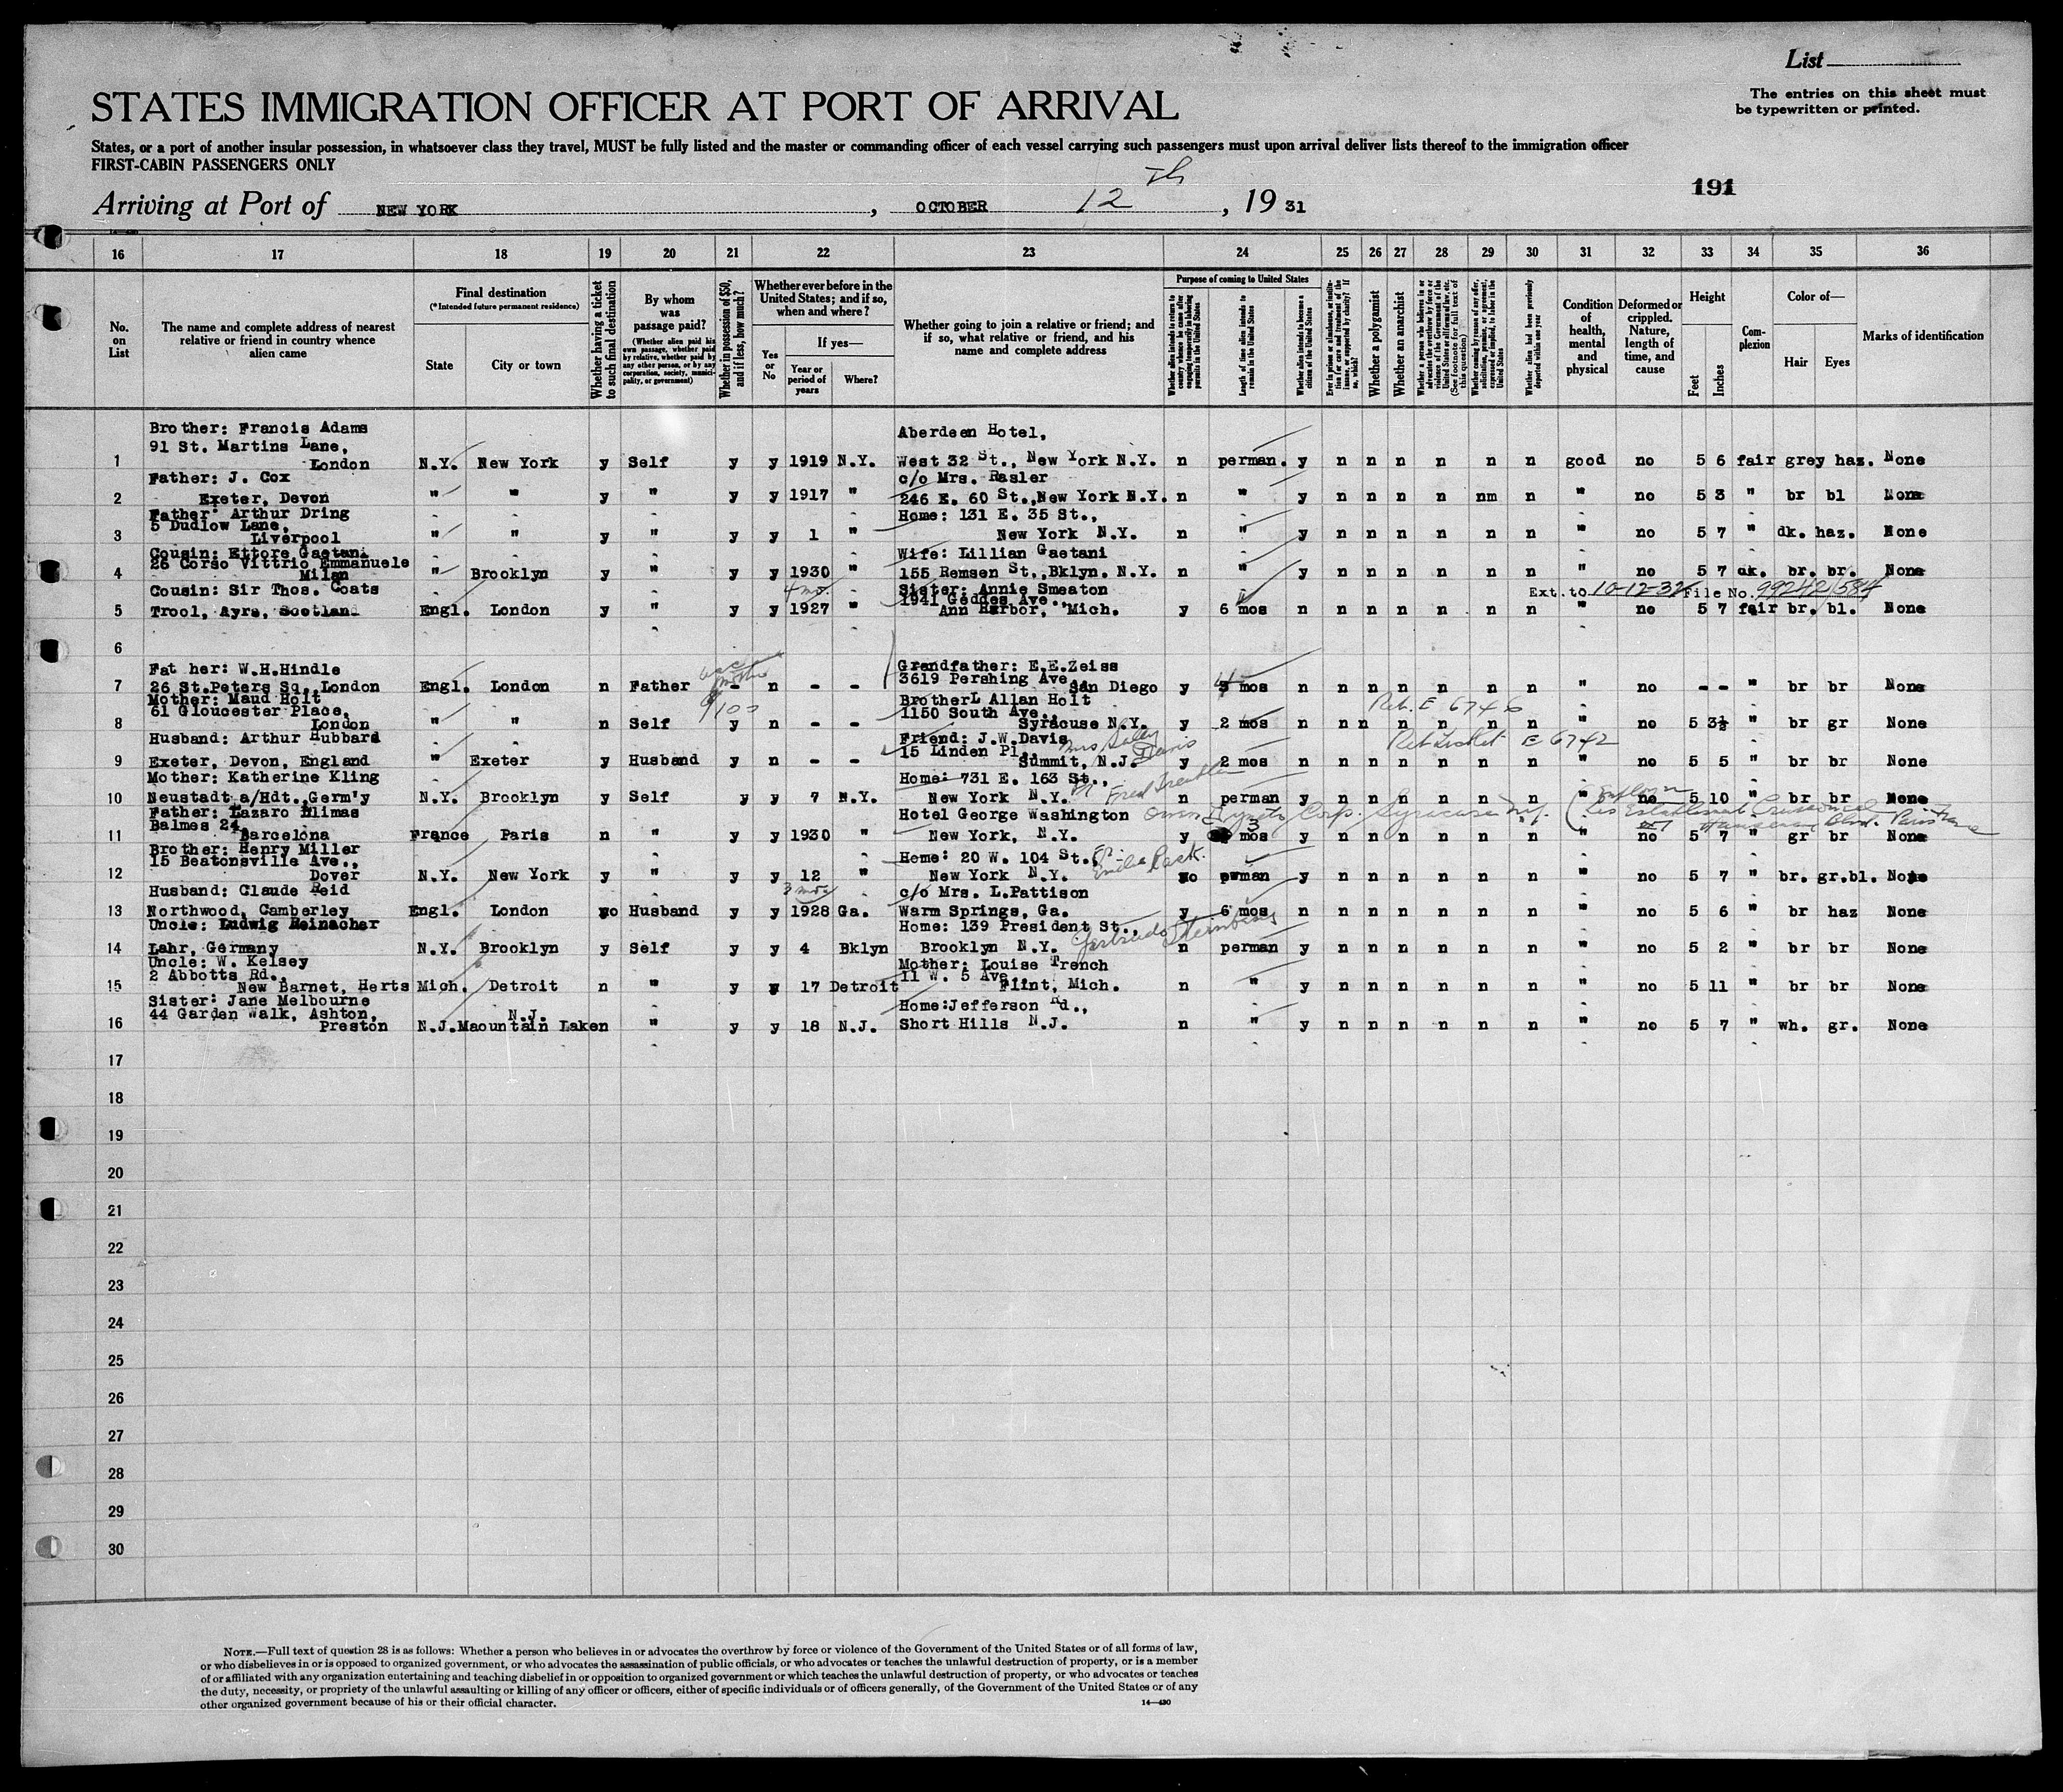 List
The entries on this sheet must
be typewritten or printed.
STATES IMMIGRATION OFFICER AT PORT OF ARRIVAL
States, or a port of another insular possession, in whatsoever class they travel, MUST be fully listed and the master or commanding officer of each vessel carrying such passengers must upon arrival deliver lists thereof to the immigration officer
FIRST-CABIN PASSENGERS ONLY
191
Arriving at Port of NEW YORK, OCTOBER 12th, 1931
16 17 18 19 20 21 22 23 24 25 26 27 28 29 30 31 32 33 34 35 36
No. on List
The name and complete address of nearest relative or friend in country whence alien came
Final destination
(*Intended future permanent residence)
State
City or town
Whether having a ticket to such final destination
By whom was passage paid?
(Whether alien paid his own passage, whether paid by relative, whether paid by any other person, or by any corporation, society, municipality, or government)
Whether in possession of $50, and if less, how much?
Whether ever before in the United States; and if so, when and where?
Yes or No
If yes—
Year or period of years
Where?
Whether going to join a relative or friend; and if so, what relative or friend, and his name and complete address
Purpose of coming to United States
Whether alien intends to return to country whence he came after engaging temporarily in laboring pursuits in the United States
Length of time alien intends to remain in the United States
Whether alien intends to become a citizen of the United States
Ever in prison or almshouse, or institution for care and treatment of the insane, or supported by charity? If so, which?
Whether a polygamist
Whether an anarchist
Whether a person who believes in or advocates the overthrow by force or violence of the Government of the United States or all forms of law, etc. (See footnote for full text of this question)
Whether coming by reason of any offer, solicitation, promise, or agreement, expressed or implied, to labor in the United States
Whether alien had been previously deported within one year
Condition of health, mental and physical
Deformed or crippled. Nature, length of time, and cause
Height
Feet
Inches
Complexion
Color of—
Hair
Eyes
Marks of identification
Brother: Francis Adams
91 St. Martins Lane, Aberdeen Hotel,
1 London N.Y. New York y Self y y 1919 N.Y. West 32 St., New York N.Y. n perman. y n n n n n n good no 5 6 fair grey haz. None
Father: J. Cox c/o Mrs. Rasler
2 Exeter, Devon " " y " y y 1917 " 246 E. 60 St., New York N.Y. n " y n n n n nm n " no 5 3 " br bl None
Father: Arthur Dring Home: 131 E. 35 St.,
5 Dudlow Lane,
3 Liverpool " " y " y y 1 " New York N.Y. n " y n n n n n n " no 5 7 " dk. haz. None
Cousin: Ettore Gaetani Wife: Lillian Gaetani
26 Corso Vittrio Emmanuele
4 Milan " Brooklyn y " y y 1930 " 155 Remsen St., Bklyn. N.Y. n " y n n n n n n " no 5 7 dk. br. br. None
Cousin: Sir Thos. Coats 4 mo. Sister: Annie Smeaton Ext. to 10-12-32 File No. 99242/584
1941 Geddes Ave.,
5 Trool, Ayrs, Scotland Engl. London y " y y 1927 " Ann Harbor, Mich. y 6 mos n n n n n n n " no 5 7 fair br. bl. None
6
Father: W.H.Hindle Grandfather: E.E.Zeiss
mother
3619 Pershing Ave.,
7 26 St.Peters Sq., London Engl. London n Father - n - - San Diego y 4 mos n n n n n n n " no - - " br br None
Mother: Maud Holt BrotherL Allan Holt
61 Gloucester Place, 100 1150 South Ave., Ret. E 6746
8 London " " n Self y n - - Syracuse N.Y. y 2 mos n n n n n n n " no 5 3½ " br gr None
Husband: Arthur Hubbard Friend: J.W.Davis
15 Linden Pl., Mrs Sally Davis E 6742
9 Exeter, Devon, England " Exeter y Husband y n - - Summit, N.J. y 2 mos n n n n n n n " no 5 5 " br br None
Mother: Katherine Kling Home: 731 E. 163 St.,
10 Neustadt a/Hdt., Germ'y N.Y. Brooklyn y Self y y 7 N.Y. New York N.Y. Fred n perman y n n n n n n " no 5 10 " br br None
Father: Lazaro Llimas Hotel George Washington Corp. Syracuse N.Y.
Balmes 24,
11 Barcelona France Paris n " y y 1930 " New York, N.Y. y 3 mos y n n n n n n " no 5 7 " gr br None
Brother: Henry Miller
15 Beatonsville Ave., Home: 20 W. 104 St., Emilie Rack.
12 Dover N.Y. New York y " y y 12 " New York N.Y. no pwman y n n n n n n " no 5 7 " br. gr.bl. None
Husband: Claude Reid 3 mos c/o Mrs. L.Pattison
13 Northwood, Camberley Engl. London no Husband y y 1928 Ga. Warm Springs, Ga. y 6 mos n n n n n n n " no 5 6 " br haz None
Uncle: Ludwig Heinacher Home: 139 President St., Gertrude Sternberg
14 Lahr, Germany N.Y. Brooklyn y Self y y 4 Bklyn Brooklyn N.Y. n perman y n n n n n n " no 5 2 " br br None
Uncle: W. Kelsey Mother: Louise Trench
2 Abbotts Rd., 11 W. 5 Ave
15 New Barnet, Herts Mich. Detroit n " y y 17 Detroit Flint, Mich. n " y n n n n n n " no 5 11 " br br None
Sister: Jane Melbourne Home:Jefferson Rd.,
44 Garden Walk, Ashton, N.J.
16 Preston N.J. Maountain Laken " y y 18 N.J. Short Hills N.J. n " y n n n n n n " no 5 7 " wh. gr. None
17
18
19
20
21
22
23
24
25
26
27
28
29
30
NOTE.—Full text of question 28 is as follows: Whether a person who believes in or advocates the overthrow by force or violence of the Government of the United States or of all forms of law,
or who disbelieves in or is opposed to organized government, or who advocates the assassination of public officials, or who advocates or teaches the unlawful destruction of property, or is a member
of or affiliated with any organization entertaining and teaching disbelief in or opposition to organized government or which teaches the unlawful destruction of property, or who advocates or teaches
the duty, necessity, or propriety of the unlawful assaulting or killing of any officer or officers, either of specific individuals or of officers generally, of the Government of the United States or of any
other organized government because of his or their official character. 14—430